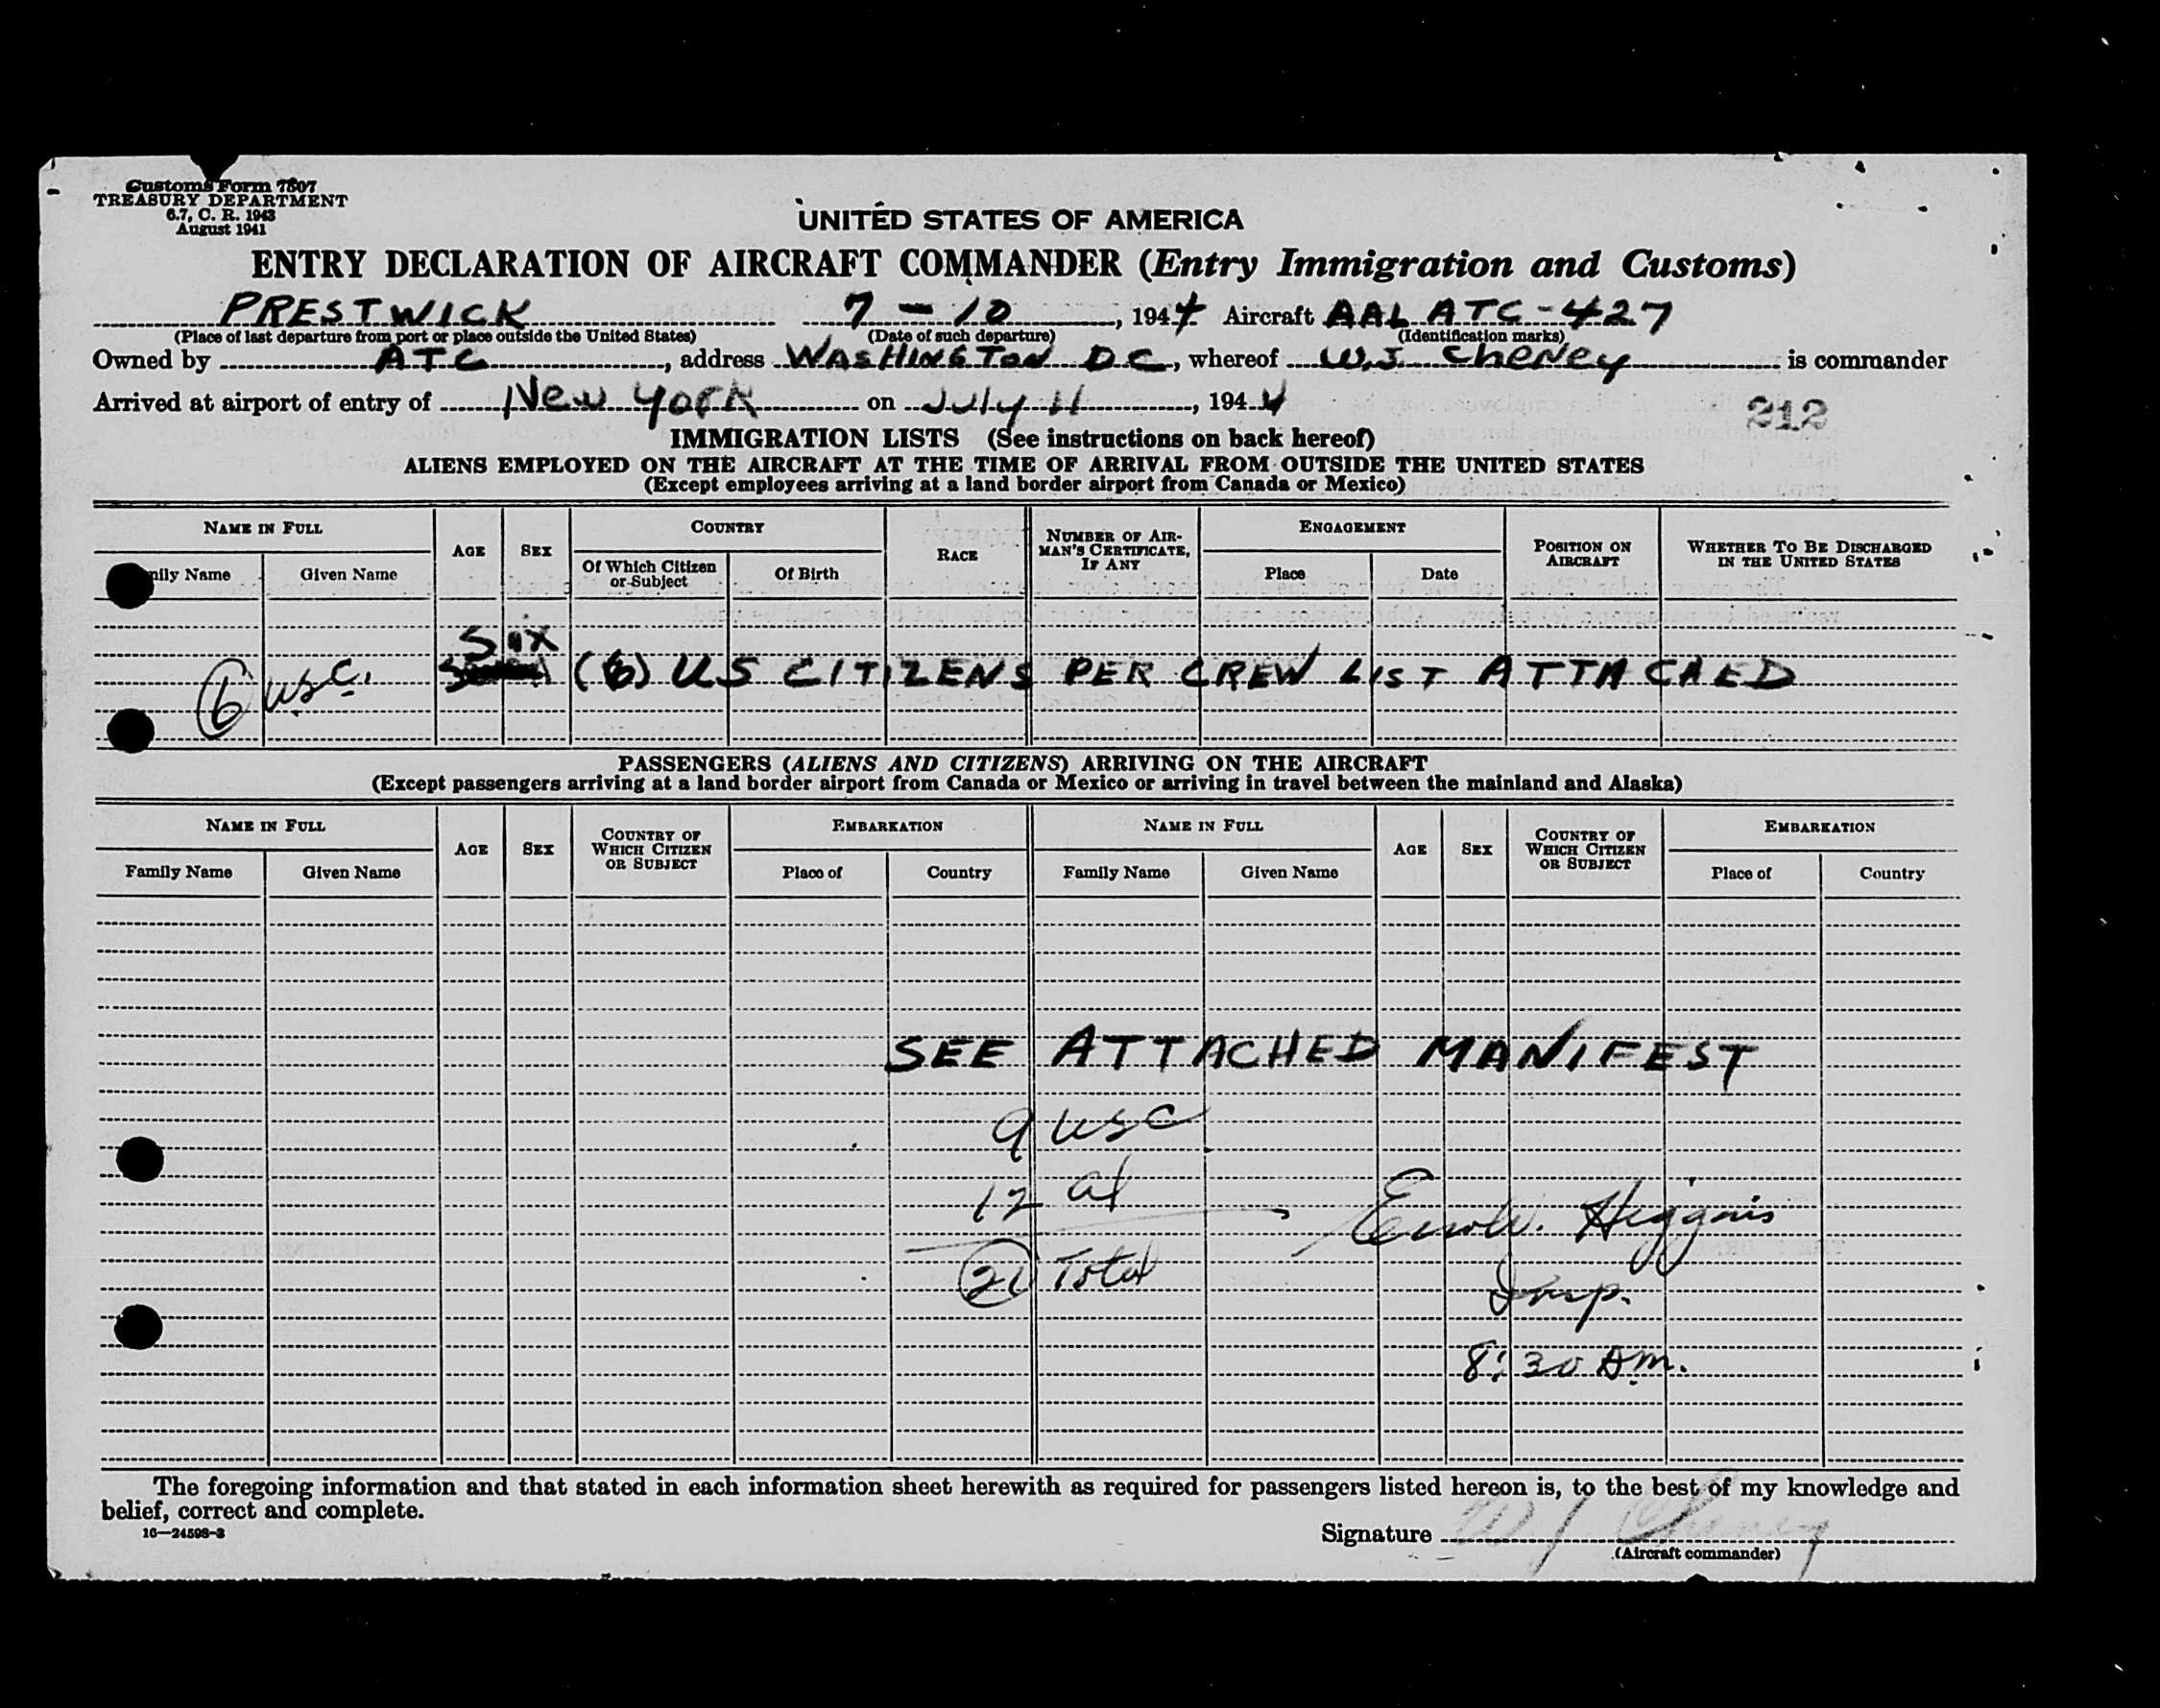 Customs Form 7507
TREASURY DEPARTMENT
6.7, C. R. 1943
August 1941
UNITED STATES OF AMERICA
ENTRY DECLARATION OF AIRCRAFT COMMANDER (Entry Immigration and Customs)
PRESTWICK 7-10, 1944 Aircraft AAL ATC-427
(Place of last departure from port or place outside the United States) (Date of such departure) (Identification marks)
Owned by ATC, address WASHINGTON DC, whereof W.J. Cheney is commander
Arrived at airport of entry of New York on July 11, 1944
212
IMMIGRATION LISTS (See instructions on back hereof)
ALIENS EMPLOYED ON THE AIRCRAFT AT THE TIME OF ARRIVAL FROM OUTSIDE THE UNITED STATES
(Except employees arriving at a land border airport from Canada or Mexico)
NAME IN FULL AGE SEX COUNTRY RACE NUMBER OF AIRMAN'S CERTIFICATE, IF ANY ENGAGEMENT POSITION ON AIRCRAFT WHETHER TO BE DISCHARGED IN THE UNITED STATES
mily Name Given Name Of Which Citizen or Subject Of Birth Place Date
Six
6 usc. (6) US CITIZENS PER CREW LIST ATTACHED
PASSENGERS (ALIENS AND CITIZENS) ARRIVING ON THE AIRCRAFT
(Except passengers arriving at a land border airport from Canada or Mexico or arriving in travel between the mainland and Alaska)
NAME IN FULL AGE SEX COUNTRY OF WHICH CITIZEN OR SUBJECT EMBARKATION NAME IN FULL AGE SEX COUNTRY OF WHICH CITIZEN OR SUBJECT EMBARKATION
Family Name Given Name Place of Country Family Name Given Name Place of Country
SEE ATTACHED MANIFEST
9 usc
12 al
Higgins
21 Total
Insp.
8:30 AM.
The foregoing information and that stated in each information sheet herewith as required for passengers listed hereon is, to the best of my knowledge and
belief, correct and complete.
16—24598-3
Signature W J Cheney
(Aircraft commander)